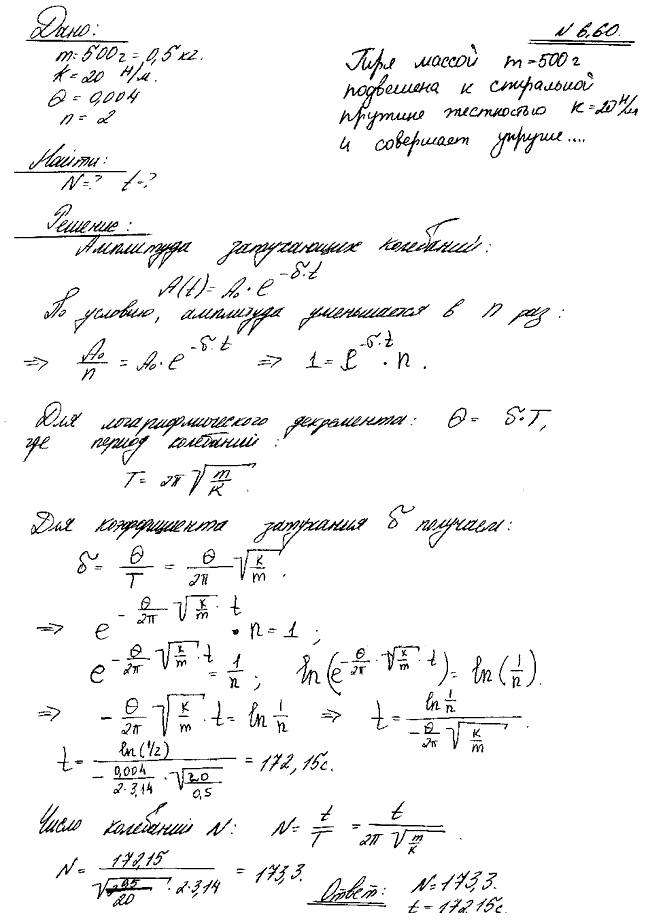 Дано:
m=500г=0,5кг.
k=20 Н/м.
Θ=0,004
n=2
N 6.60.
Гиря массой m=500г
подвешена к спиральной
пружине жесткостью к=20Н/м
и совершает упругие....
Найти:
N=? t=?
Решение:
Амплитуда затухающих колебаний:
A(t)=A₀·e^(-δ·t)
По условию, амплитуда уменьшается в n раз:
=> A₀/n = A₀·e^(-δ·t) => 1=e^(-δ·t)·n.
Для логарифмического декремента: Θ= δ·T,
где период колебаний:
T= 2π √(m/k).
Для коэффициента затухания δ получаем:
δ= Θ/T = Θ/2π √(k/m).
=> e^(-Θ/2π √(k/m)·t) · n=1;
e^(-Θ/2π √(k/m)·t) = 1/n; ln(e^(-Θ/2π·√(k/m)·t))= ln(1/n).
=> -Θ/2π √(k/m)·t= ln 1/n => t= ln 1/n / (-Θ/2π √(k/m)).
t= ln(1/2) / (-0,004/2·3,14 · √(20/0,5)) = 172,15с.
Число колебаний N: N= t/T = t/(2π √(m/k)).
N= 172,15 / (√(0,5/20)·2·3,14) = 173,3.
Ответ: N=173,3.
t=172,15с.